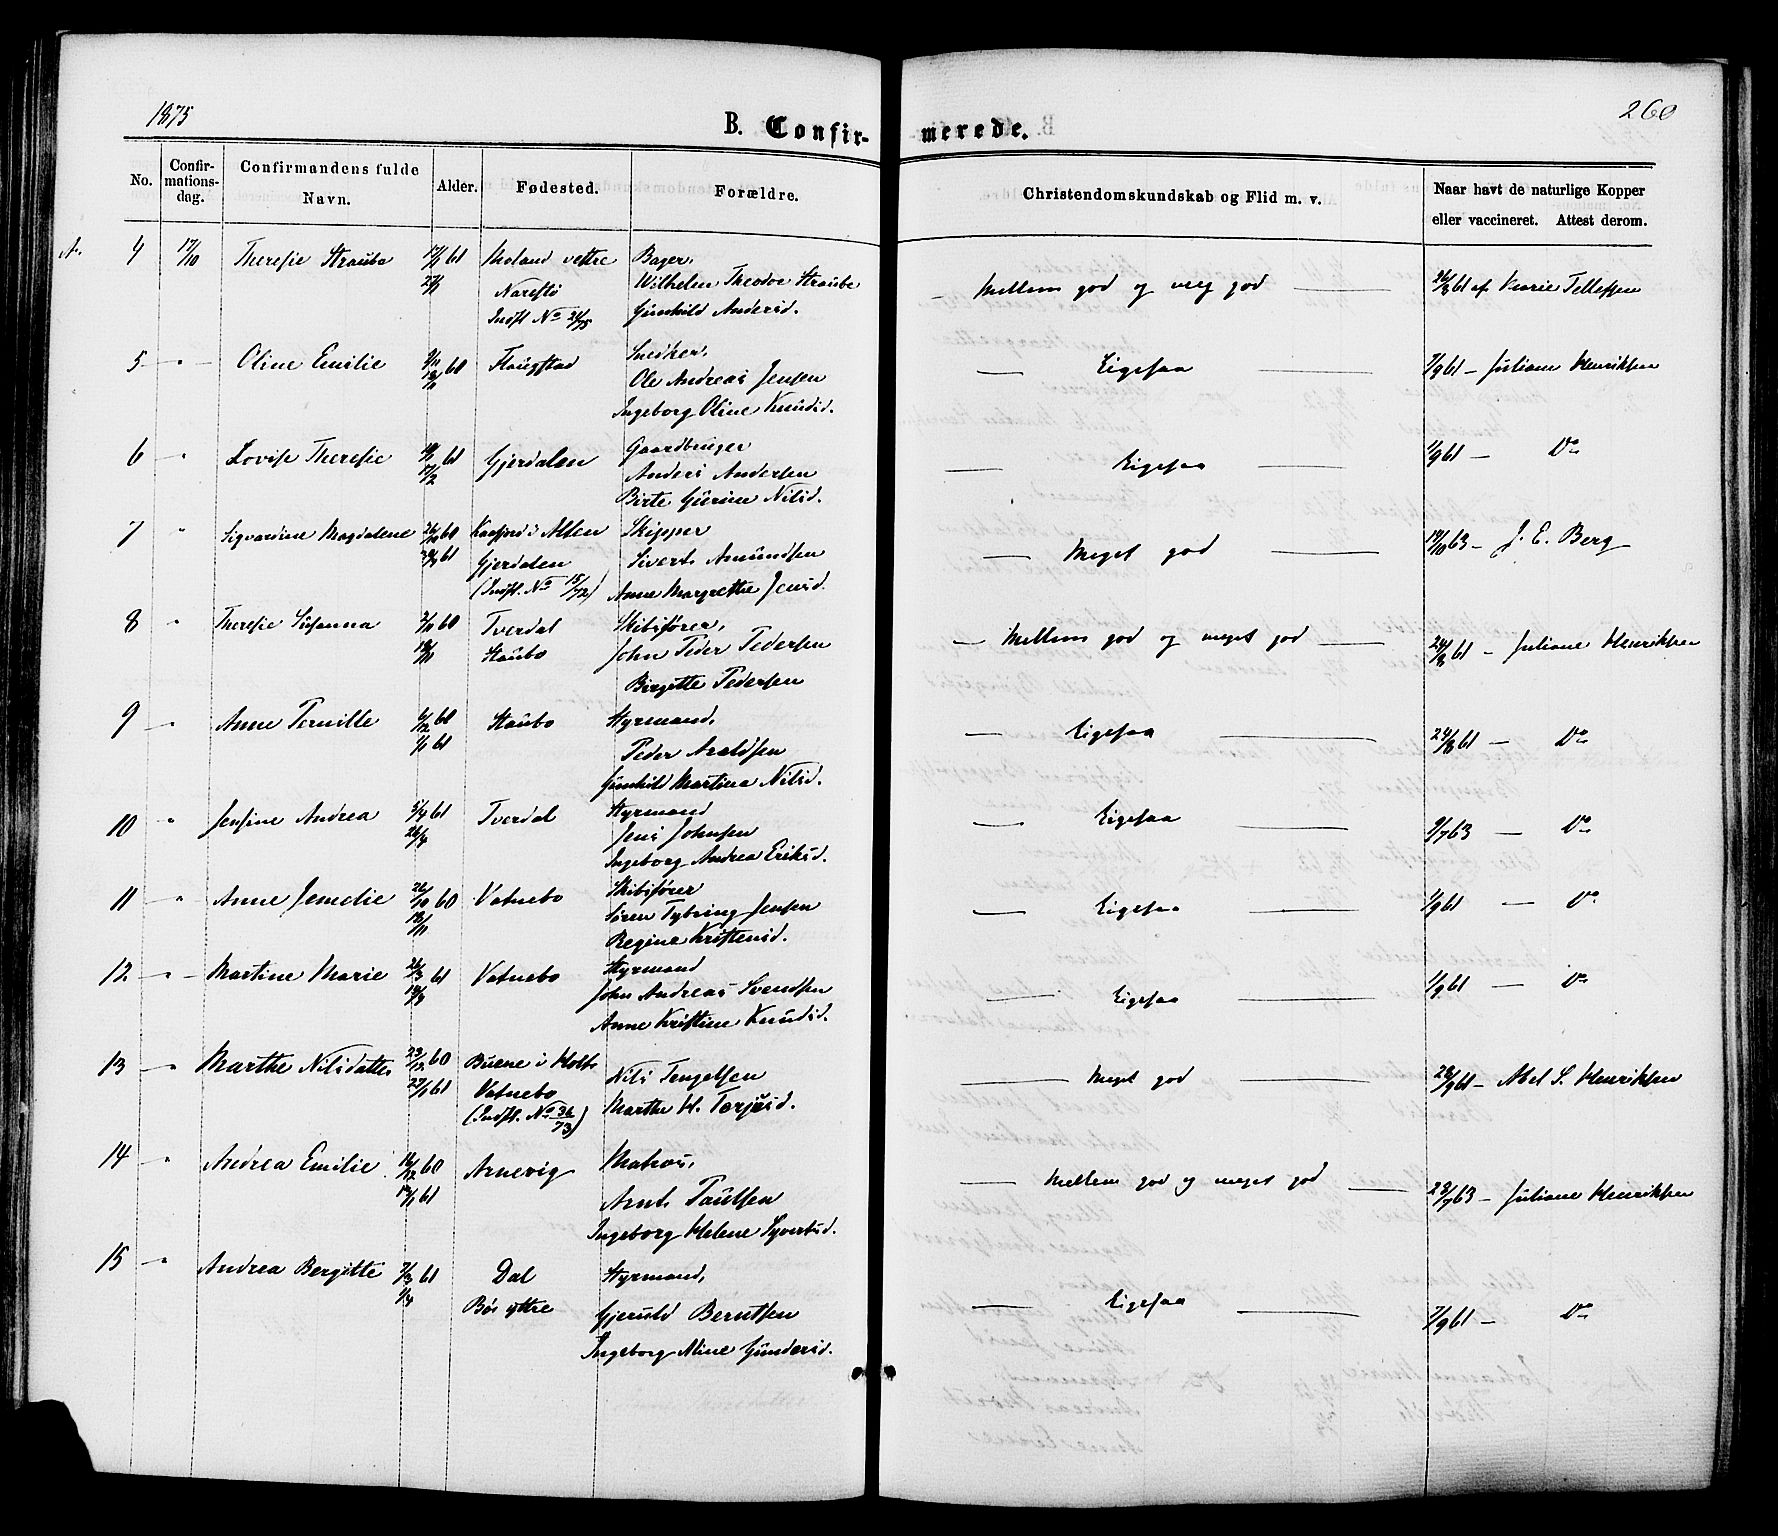 1875
260
B. Confir- merede.
No.
Confir-
mations-
dag.
Confirmandens fulde
Navn.
Alder.
Fødested.
Forældre.
Christendomskundskab og Flid m. v.
Naar havt de naturlige Kopper
eller vaccineret. Attest derom.
4 17/10 Theresie Straube 61 Moland vestre Bager,
Narestø Wilhelm Theodor Straube
Indfl. No 21/75 Gunhild Andersd.
Mellem god og meget god 26/8 61 af Marie Tellefsen
5 " Oline Emilie 60 Flaugstad Snedker,
Ole Andreas Jensen
Ingeborg Oline Knudsd.
Ligesaa 7/9 61 – Juliane Henriksen
6 " Lovise Theresie 61 Gjerdalen Gaardbruger
17/2 Anders Andersen
Birte Gurine Nilsd.
Ligesaa 1/9 61 – Do
7 " Sigvardine Magdalene 26/10 60 Kaafjord i Alten Skipper
61 Gjerdalen Sivert Amundsen
(Indfl. No 15/72) Anne Margrethe Jensd.
Meget god 19/10 63 – J. E. Berg
8 " Theresie Susanna 60 Tverdal Skibsfører,
18/11 Staubo John Peder Pedersen
Birgitte Pedersen
Mellem god og meget god 24/8 61 – Juliane Henriksen
9 " Anne Pernille 6/12 60 Staubo Styrmand,
1/1 61 Peder Axeldsen
Gunhild Martina Nilsd.
Ligesaa 24/8 61 – Do
10 " Jensine Andrea 5/4 61 Tverdal Styrmand
26/4 Jens Johnsen
Ingeborg Andrea Eriksd.
Ligesaa 9/7 63 – Do
11 " Anne Jemelie 26/10 60 Vatnebo Skibsfører
18/11 Søren Tybring Jensen
Regine Kristensd.
Ligesaa 1/9 61 – Do
12 " Martine Marie 26/3 61 Vatnebo Styrmand
John Andreas Svendsen
Anne Kristine Knudsd.
Ligesaa 1/9 61 – Do
13 " Marthe Nilsdatter 23/12 60 Buene i Holt Nils Tengelsen
27/1 61 Vatnebo Marthe H. Terjesd.
(Indfl. No 36/73)
Meget god 28/9 61 – Abel S. Henriksen
14 " Andrea Emilie 16/12 60 Arnevig Matros,
61 Arnt Paulsen
Ingeborg Helene Syvertsd.
Mellem god og meget god 23/7 63 – Juliane Henriksen
15 " Andrea Bergitte 7/3 61 Dal Styrmand,
1/4 Bøs yttre Gjeruld Berntsen
Ingeborg Aline Gundersd.
Ligesaa 7/9 61 – Do